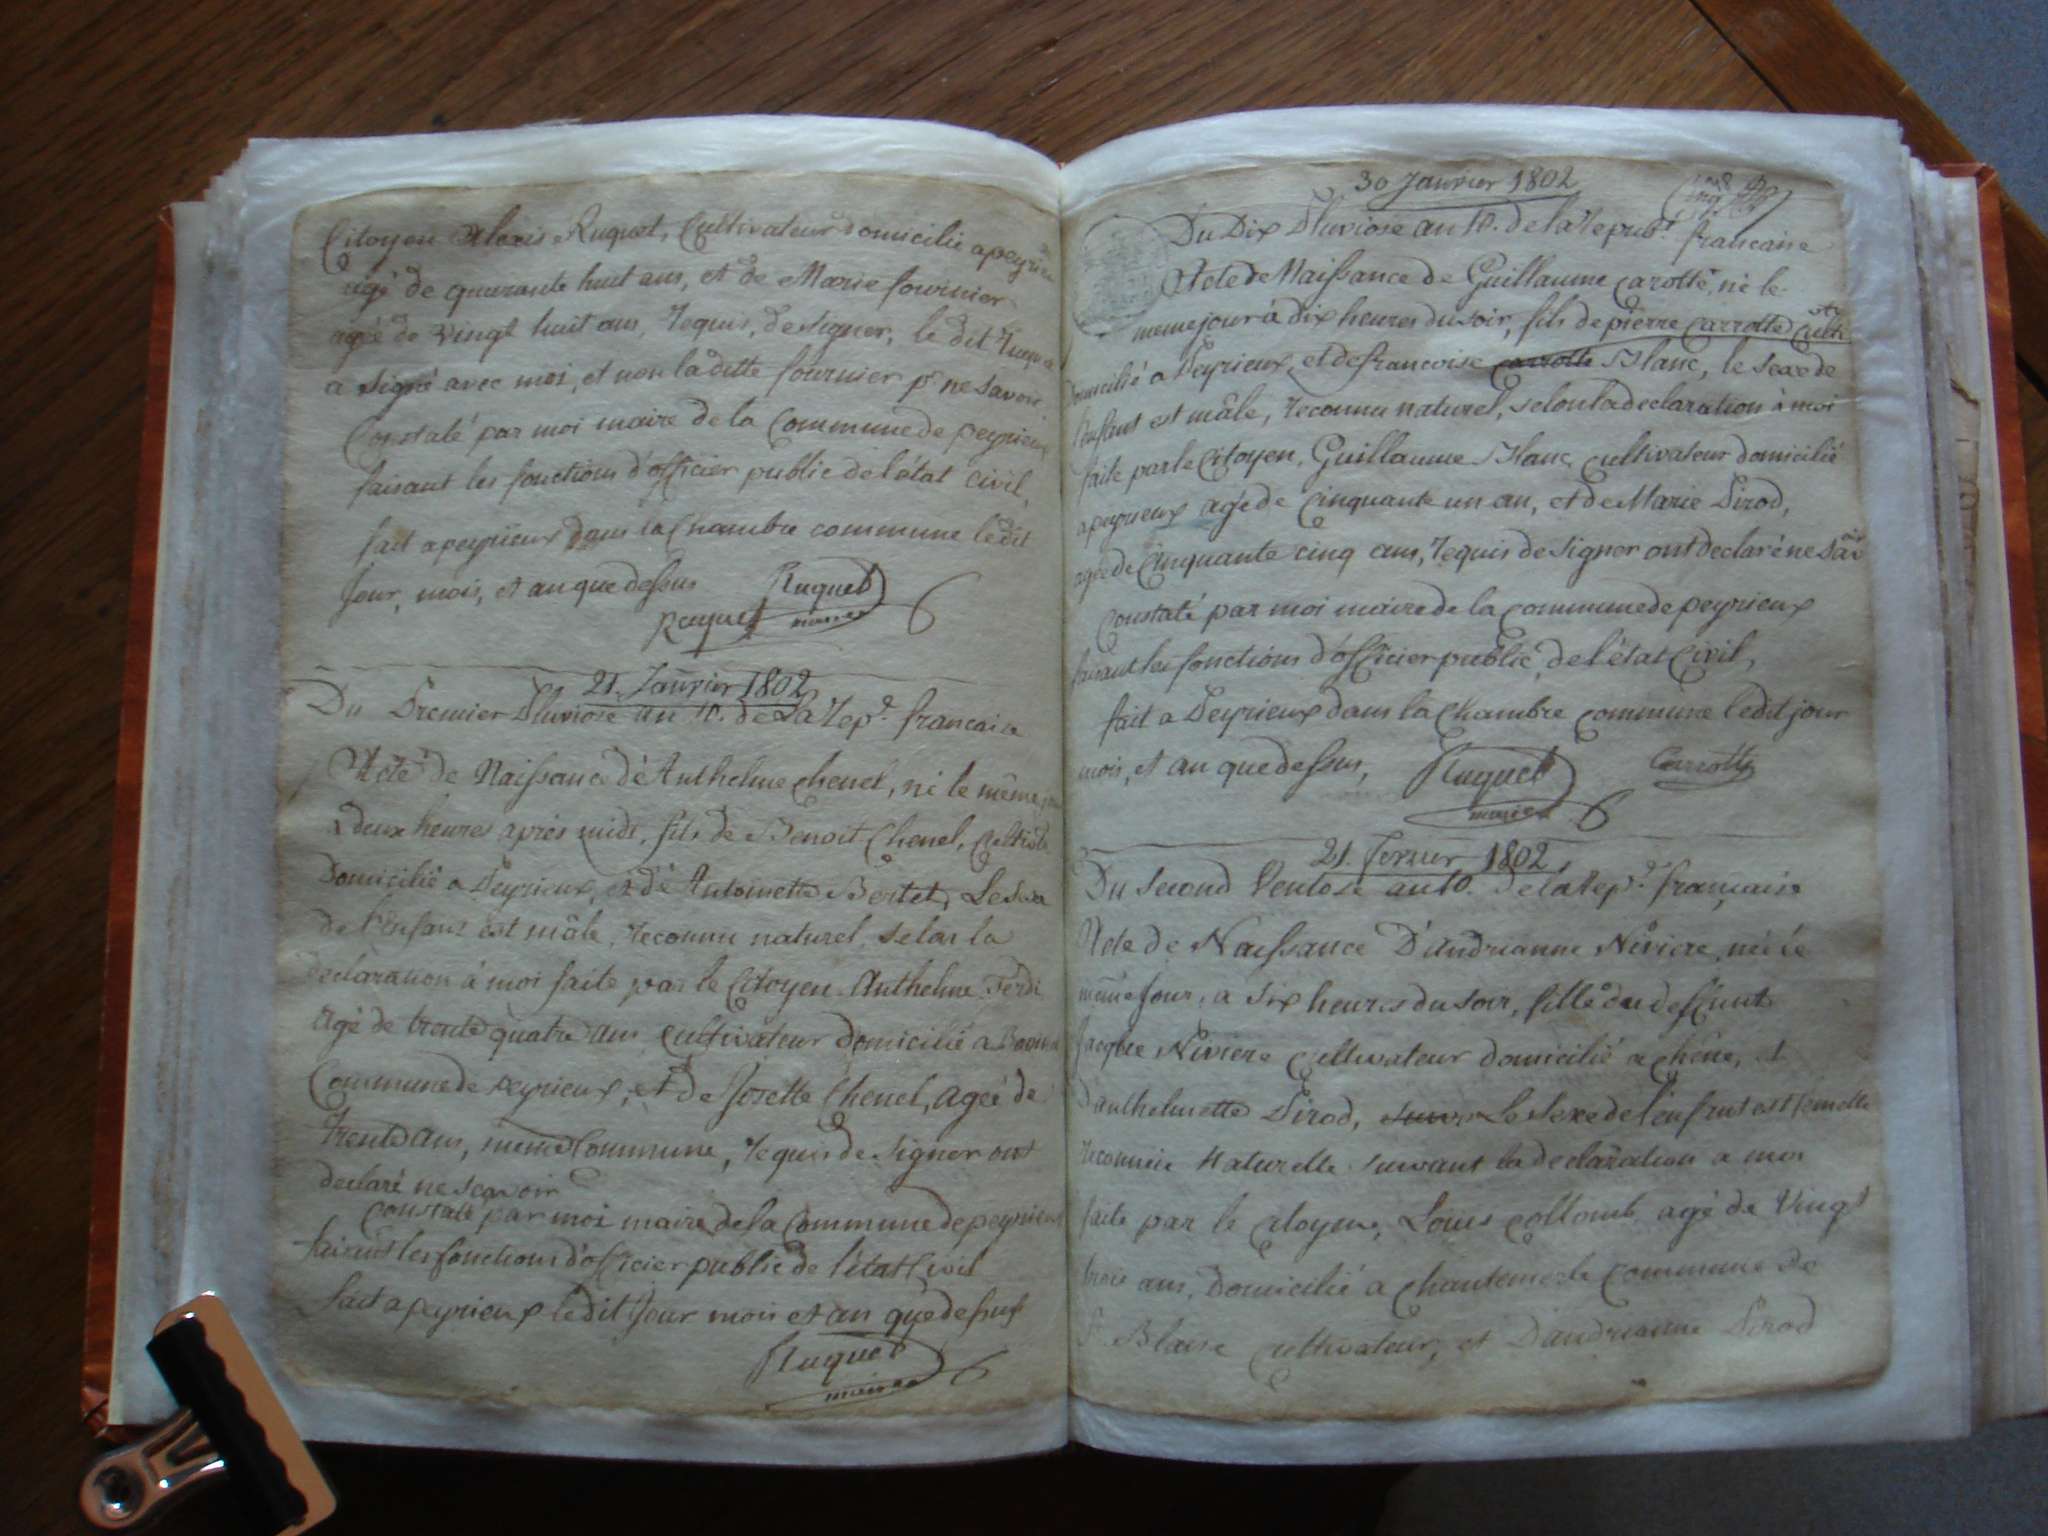 Citoyen Alexis Ruquet, Cultivateur domicilié a peyrieu
agé de quarante huit ans, et de Marie fournier
agée de vingt huit ans, requis, de signer, le dit Ruquet
a signé avec moi, et non la ditte fournier pr ne savoir.
Constaté par moi maire de la Commune de peyrieux
faisant les fonctions d'officier public de l'état civil,
fait a peyrieux dans la Chambre commune ledit
Jour, mois, et an que dessus Ruquet
Ruquet maire
21. Janvier 1802
Du Premier Pluviose an 10. de La Rep.e francaise
Acte de Naissance de Anthelme Chenel, né le même jour
a deux heures après midi, fils de Benoit Chenel, Cultivt
Domicilié a Peyrieux, et de Antoinette Bertet, Le sexe
de l'enfant est mâle, reconnu naturel, selon la
declaration à moi faite par le Citoyen Anthelme
Agé de trente quatre ans Cultivateur domicilié a
Commune de peyrieux, et de Josette Chenel, agée de
trente ans, même Commune, requis de signer ont
declaré ne scavoir
Constaté par moi maire de la Commune de peyrieux
faisant les fonctions d'officier public de l'état Civil
fait a peyrieux le dit Jour mois et an que dessus
Ruquet
maire
30 Janvier 1802
Du Dix Pluviose an 10. de la Repub.e francaise
Acte de Naissance de Guillaume Carotte, né le
meme jour à dix heures du soir, fils de pierre Carrotte Culti
domicilié a Peyrieux, et de francoise carrotte Blanc, le sexe de
l'enfant est mâle, reconnu naturel, selon la declaration à moi
faite par le Citoyen, Guillaume Blanc cultivateur domicilié
a peyrieux agé de Cinquante un an, et de Marie Pirod,
agée de Cinquante cinq ans, requis de signer ont declaré ne
Constaté par moi maire de la Commune de peyrieux
faisant les fonctions d'officier public, de l'état Civil,
fait a Peyrieux dans la Chambre commune ledit jour
mois, et an que dessus, Ruquet Carrotte
maire
21. fevrier 1802
Du second Ventose an 10. de la Rep.e française
Acte de Naissance D'andrianne Niviere, née le
même Jour, a six heures du soir, fille du deffunt
Jacque Niviere Cultivateur domicilié a chêne, et
D'anthelmette Pirod, Le Sexe de l'enfant est femelle
reconnue Naturelle suivant la declaration a moi
faite par le citoyen, Louis Collomb agé de Vingt
trois ans, domicilié a chantemerle Commune de
St. Blaise Cultivateur, et D'andrianne Pirod